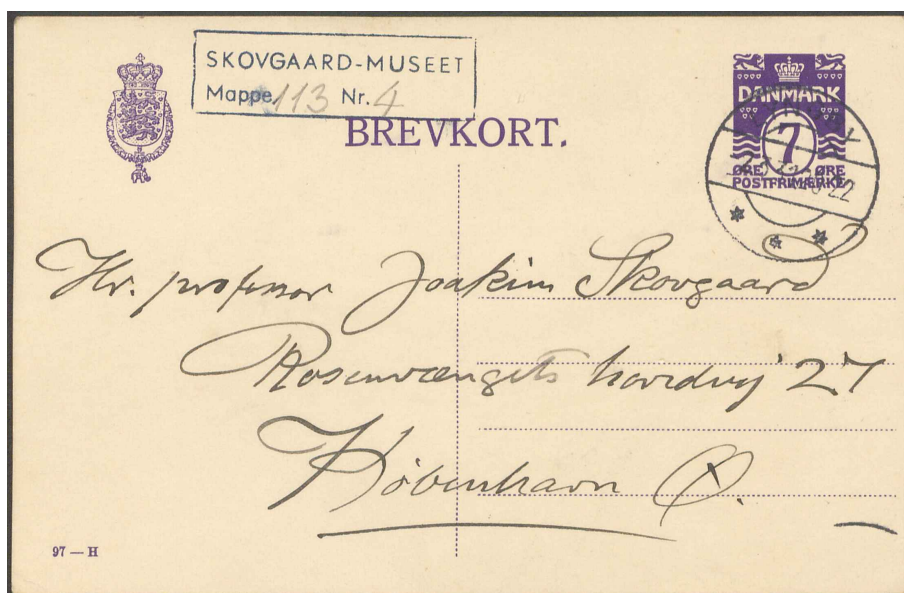 SKOVGAARD-MUSEET
Mappe 113 Nr. 4
BREVKORT.
DANMARK
7
ØRE ØRE
POSTFRIMÆRKE
Hr. professor Joakim Skovgaard
Rosenvængets hovedvej 27
København Ø.
97 — H